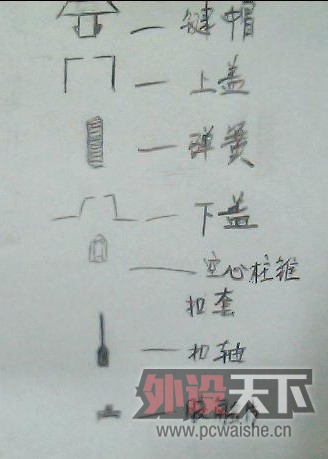 键帽
上盖
弹簧
下盖
空心柱锥
扣套
扣轴
外设天下
www.pcwaishe.cn